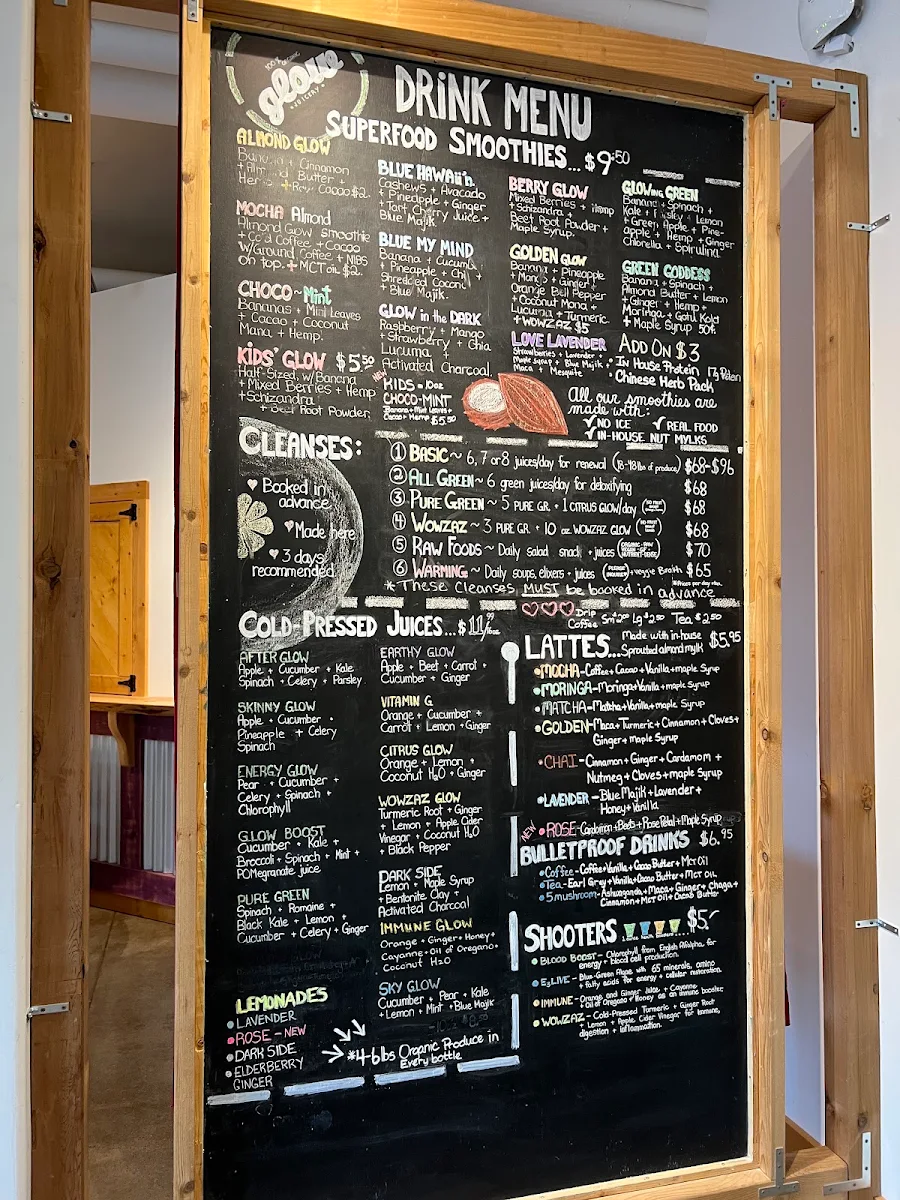 100% ORGANIC
glow
JUICERY
DRINK MENU
SUPERFOOD SMOOTHIES... $9.50
ALMOND GLOW
Banana + Cinnamon
+ Almond Butter +
Hemp + Raw Cacao $2
MOCHA Almond
Almond Glow smoothie
+ Cold Coffee + Cacao
w/Ground Coffee + NIBS
on top. + MCT oil $2
CHOCO~Mint
Bananas + Mint Leaves
+ Cacao + Coconut
Mana + Hemp.
KIDS' GLOW $5.50
Half-Sized, w/Banana
+ Mixed Berries + Hemp
+ Schizandra
+ Beet Root Powder
BLUE HAWAII'n
Cashews + Avacado
+ Pineapple + Ginger
+ Tart Cherry Juice +
Blue Majik
BLUE MY MIND
Banana + Cucumb
+ Pineapple + Chi +
Shredded Coconut
+ Blue Majik.
GLOW in the DARK
Raspberry + Mango
+ Strawberry + Chia
Lucuma +
Activated Charcoal
NEW
KIDS - 10oz
CHOCO-MINT
Banana + Mint Leaves +
Cacao + Hemp $5.50
BERRY GLOW
Mixed Berries + Hemp
+ Schizandra +
Beet Root Powder +
Maple Syrup.
GOLDEN GLOW
Banana + Pineapple
+ Mango + Ginger +
Orange Bell Pepper
+ Coconut Mana +
Lucuma + Turmeric
+ WOWZAZ $5
LOVE LAVENDER
Strawberries + Lavender +
Maple Syrup + Blue Majik +
Maca + Mesquite
GLOWing GREEN
Banana + Spinach +
Kale + Parsley + Lemon
+ Green Apple + Pine-
apple + Hemp + Ginger
Chlorella + Spirulina
GREEN GODDESS
Banana + Spinach +
Almond Butter + Lemon
+ Ginger + Hemp +
Moringa + Gotu Kola
+ Maple Syrup 50¢
ADD ON $3
• In House Protein 17g Protein
• Chinese Herb Pack
All our smoothies are
made with:
✓ NO ICE ✓ REAL FOOD
✓ IN-HOUSE NUT MYLKS
CLEANSES:
♥ Booked in
advance
♥ Made here
♥ 3 days
recommended
① BASIC ~ 6, 7 or 8 juices/day for renewal (18-48 lbs of produce) $68-$96
② ALL GREEN ~ 6 green juices/day for detoxifying $68
③ PURE GREEN ~ 5 PURE GR. + 1 CITRUS GLOW/day $68
④ WOWZAZ ~ 3 PURE GR. + 10 oz WOWZAZ GLOW $68
⑤ RAW FOODS ~ Daily salad snack + juices $70
⑥ WARMING ~ Daily soups, elixers + juices + veggie Broth $65
* These Cleanses MUST be booked in advance
*Prices per day
Drip Coffee Sm $2.00 Lg $2.50 Tea $2.50
COLD-PRESSED JUICES... $11/16oz
AFTER GLOW
Apple + Cucumber + Kale
Spinach + Celery + Parsley
SKINNY GLOW
Apple + Cucumber +
Pineapple + Celery
Spinach
ENERGY GLOW
Pear + Cucumber +
Celery + Spinach +
Chlorophyll
GLOW BOOST
Cucumber + Kale +
Broccoli + Spinach + Mint +
POMegranate juice
PURE GREEN
Spinach + Romaine +
Black Kale + Lemon +
Cucumber + Celery + Ginger
LEMONADES
• LAVENDER
• ROSE - NEW
• DARK SIDE
• ELDERBERRY
GINGER
EARTHY GLOW
Apple + Beet + Carrot +
Cucumber + Ginger
VITAMIN G
Orange + Cucumber +
Carrot + Lemon + Ginger
CITRUS GLOW
Orange + Lemon +
Coconut H2O + Ginger
WOWZAZ GLOW
Turmeric Root + Ginger
+ Lemon + Apple Cider
Vinegar + Coconut H2O
+ Black Pepper
DARK SIDE
Lemon + Maple Syrup
+ Bentonite Clay +
Activated Charcoal
IMMUNE GLOW
Orange + Ginger + Honey +
Cayanne + Oil of Oregano +
Coconut H2O
SKY GLOW
Cucumber + Pear + Kale
+ Lemon + Mint + Blue Majik
*4-6 lbs Organic Produce in
Every bottle
LATTES... Made with in-house
Sprouted almond mylk $5.95
• MOCHA - Coffee + Cacao + Vanilla + maple Syrup
• MORINGA - Moringa + Vanilla + maple Syrup
• MATCHA - Matcha + Vanilla + maple Syrup
• GOLDEN - Maca + Turmeric + Cinnamon + Cloves +
Ginger + maple Syrup
• CHAI - Cinnamon + Ginger + Cardamom +
Nutmeg + Cloves + maple Syrup
• LAVENDER - Blue Majik + Lavender +
Honey + Vanilla
NEW • ROSE - Cardamom + Beets + Rose Petal + Maple Syrup
BULLETPROOF DRINKS $6.95
• Coffee - Coffee + Vanilla + Cacao Butter + Mct Oil
• Tea - Earl Grey + Vanilla + Cacao Butter + MCT OIL
• 5 mushroom - Ashwaganda + Maca + Ginger + chaga +
Cinnamon + MCT Oil + Cacao Butter
SHOOTERS $5
• BLOOD BOOST - Chlorophyll from English Alfalpha, for
energy + blood cell production.
• E3LIVE - Blue-Green Algae with 65 minerals, amino
+ fatty acids for energy + cellular restoration.
• IMMUNE - Orange and Ginger Juice + Cayenne
Oil of Oregano + Honey as an immune booster
• WOWZAZ - Cold-Pressed Turmeric + Ginger Root
+ Lemon + Apple Cider Vinegar for immune,
digestion + inflammation.